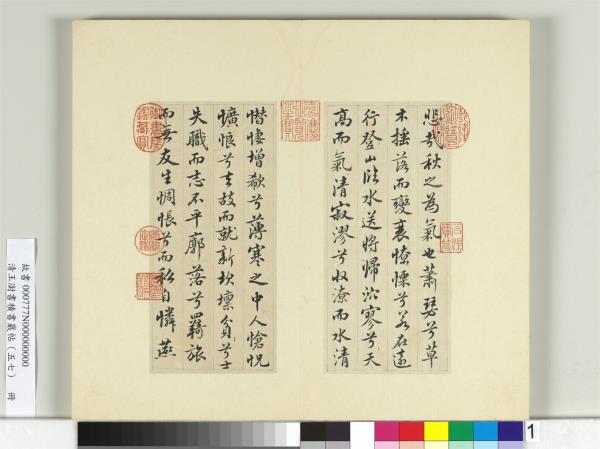 悲哉秋之為氣也蕭瑟兮草
木搖落而變衰憭慄兮若在遠
行登山臨水送將歸泬寥兮天
高而氣清寂漻兮收潦而水清
憯悽增欷兮薄寒之中人愴怳
懭悢兮去故而就新坎壈貧兮士
失職而志不平廓落兮羇旅
而無友生惆悵兮而私自憐燕
故書 000777N000000000
清王澍書積書巖帖(五七) 冊
1